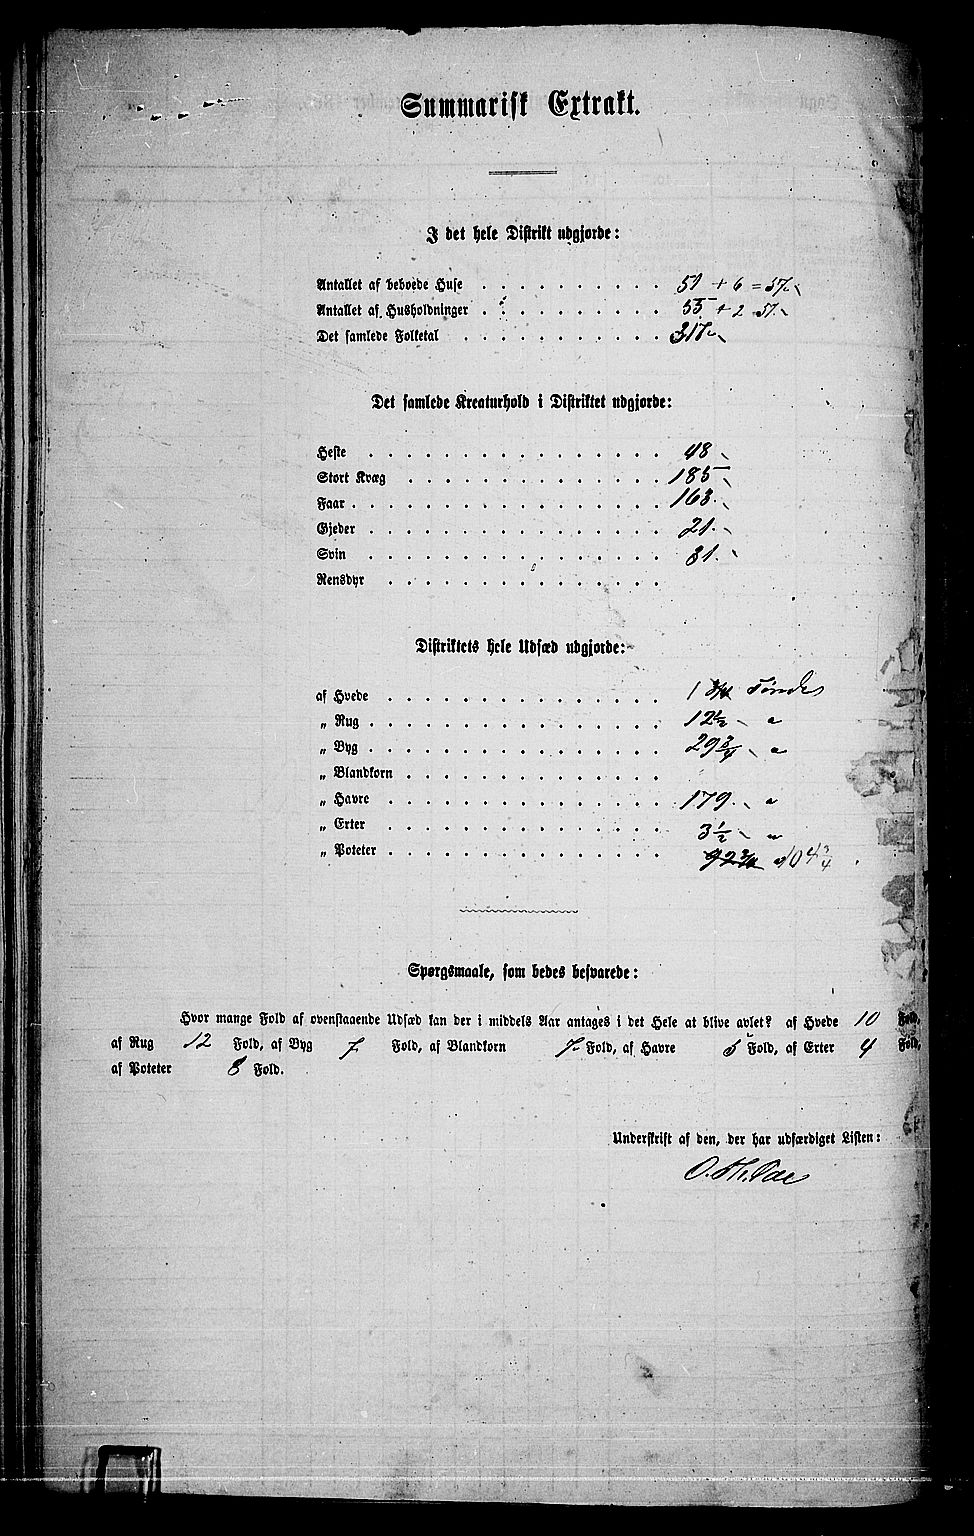 Summarisk Extrakt.
I det hele Distrikt udgjorde:
Antallet af beboede Huse . . . . . . . . . . 51 + 6 = 57
Antallet af Husholdninger . . . . . . . . . . 55 + 2 57
Det samlede Folketal . . . . . . . . . . . 317
Det samlede Kreaturhold i Distriktet udgjorde:
Heste . . . . . . . . . . . . . . . . 48
Stort Kvæg . . . . . . . . . . . . . . 185
Faar . . . . . . . . . . . . . . . . . 163
Gjeder . . . . . . . . . . . . . . . . 21
Svin . . . . . . . . . . . . . . . . 31
Rensdyr . . . . . . . . . . . . . . .
Distriktets hele Udsæd udgjorde:
af Hvede . . . . . . . . . . . . . . . 1 3/4 Tønder
„ Rug . . . . . . . . . . . . . . . . 12 1/2 "
„ Byg . . . . . . . . . . . . . . . . 29 3/4 "
„ Blandkorn . . . . . . . . . . . . . .
„ Havre . . . . . . . . . . . . . . . 179 "
„ Erter . . . . . . . . . . . . . . . 3 1/2 "
„ Poteter . . . . . . . . . . . . . . . 92 3/4 " 104 3/4
Spørgsmaale, som bedes besvarede:
Hvor mange Fold af ovenstaaende Udsæd kan der i middels Aar antages i det Hele at blive avlet? af Hvede 10 Fold,
af Rug 12 Fold, af Byg 7 Fold, af Blandkorn 7 Fold, af Havre 5 Fold, af Erter 4 Fold,
af Poteter 8 Fold.
Underskrift af den, der har udfærdiget Listen:
O. Th.